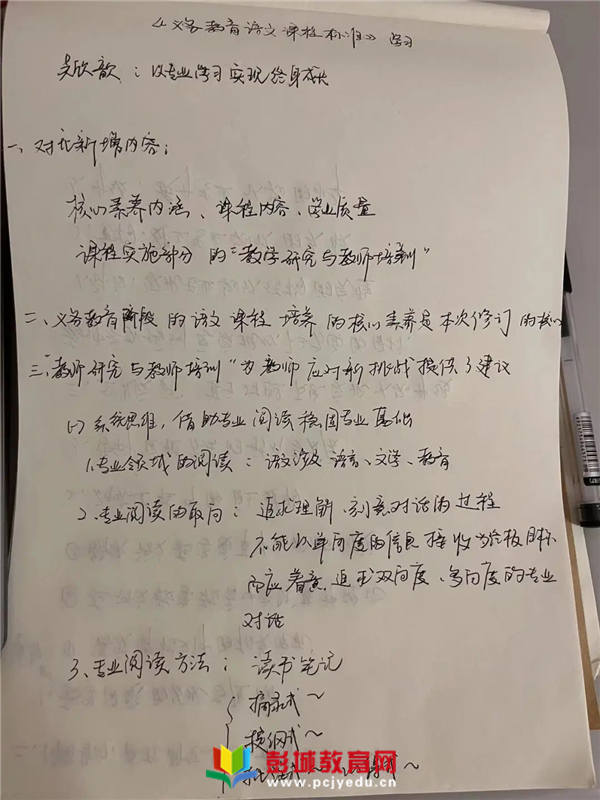 《义务教育语文课程标准》学习
吴欣歆：以专业学习实现终身成长
一、对比新增内容：
核心素养内涵、课程内容、学业质量
课程实施部分的“教学研究与教师培训”
二、义务教育阶段的语文课程培养的核心素养是本次修订的核心
三、“教师研究与教师培训”为教师应对新挑战提供了建议
(一)系统思维，借助专业阅读稳固专业基础
1.专业领域的阅读：语文涉及语言、文学、教育
2、专业阅读的取向：追求理解、刻意对话的过程
不能以单向度的信息接收为终极目标
而应着意追求双向度、多向度的专业
对话
3、专业阅读方法：读书笔记
摘录式~
提纲式~
批注式~ ~
彭城教育网
www.pcjyedu.cn